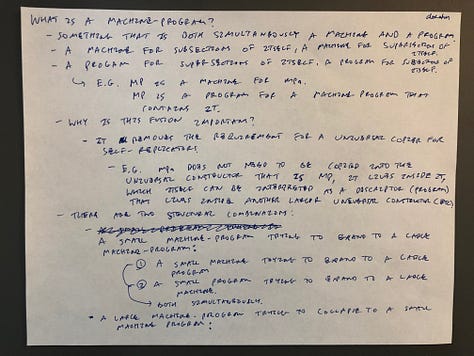 WHAT IS A MACHINE-PROGRAM?
- SOMETHING THAT IS BOTH SIMULTANEOUSLY A MACHINE AND A PROGRAM
- A MACHINE FOR SUBSECTIONS OF ITSELF, A MACHINE FOR SUPERSECTIONS OF ITSELF.
- A PROGRAM FOR SUPERSECTIONS OF ITSELF, A PROGRAM FOR SUBSECTIONS OF ITSELF.
↳ E.G. MP IS A MACHINE FOR
MP IS A PROGRAM FOR A MACHINE-PROGRAM THAT
CONTAINS IT.
- WHY IS THIS FUSION IMPORTANT?
- IT REMOVES THE REQUIREMENT FOR A UNIVERSAL COPIER FOR
SELF-REPLICATORS
- E.G. DOES NOT NEED TO BE COPIED INTO THE
UNIVERSAL CONSTRUCTOR THAT IS MP, IT LIVES INSIDE IT,
WHICH ITSELF CAN BE INTERPRETED AS A DESCRIPTOR (PROGRAM)
THAT LIVES INSIDE ANOTHER LARGER UNIVERSAL CONSTRUCTOR
- THERE ARE TWO STRUCTURAL COMBINATIONS:
A SMALL MACHINE-PROGRAM TRYING TO EXPAND TO A LARGE
MACHINE-PROGRAM:
① A SMALL MACHINE TRYING TO EXPAND TO A LARGE
PROGRAM
② A SMALL PROGRAM TRYING TO EXPAND TO A LARGE
MACHINE.
↳ BOTH SIMULTANEOUSLY.
- A LARGE MACHINE-PROGRAM TRYING TO COLLAPSE TO A SMALL
MACHINE PROGRAM: